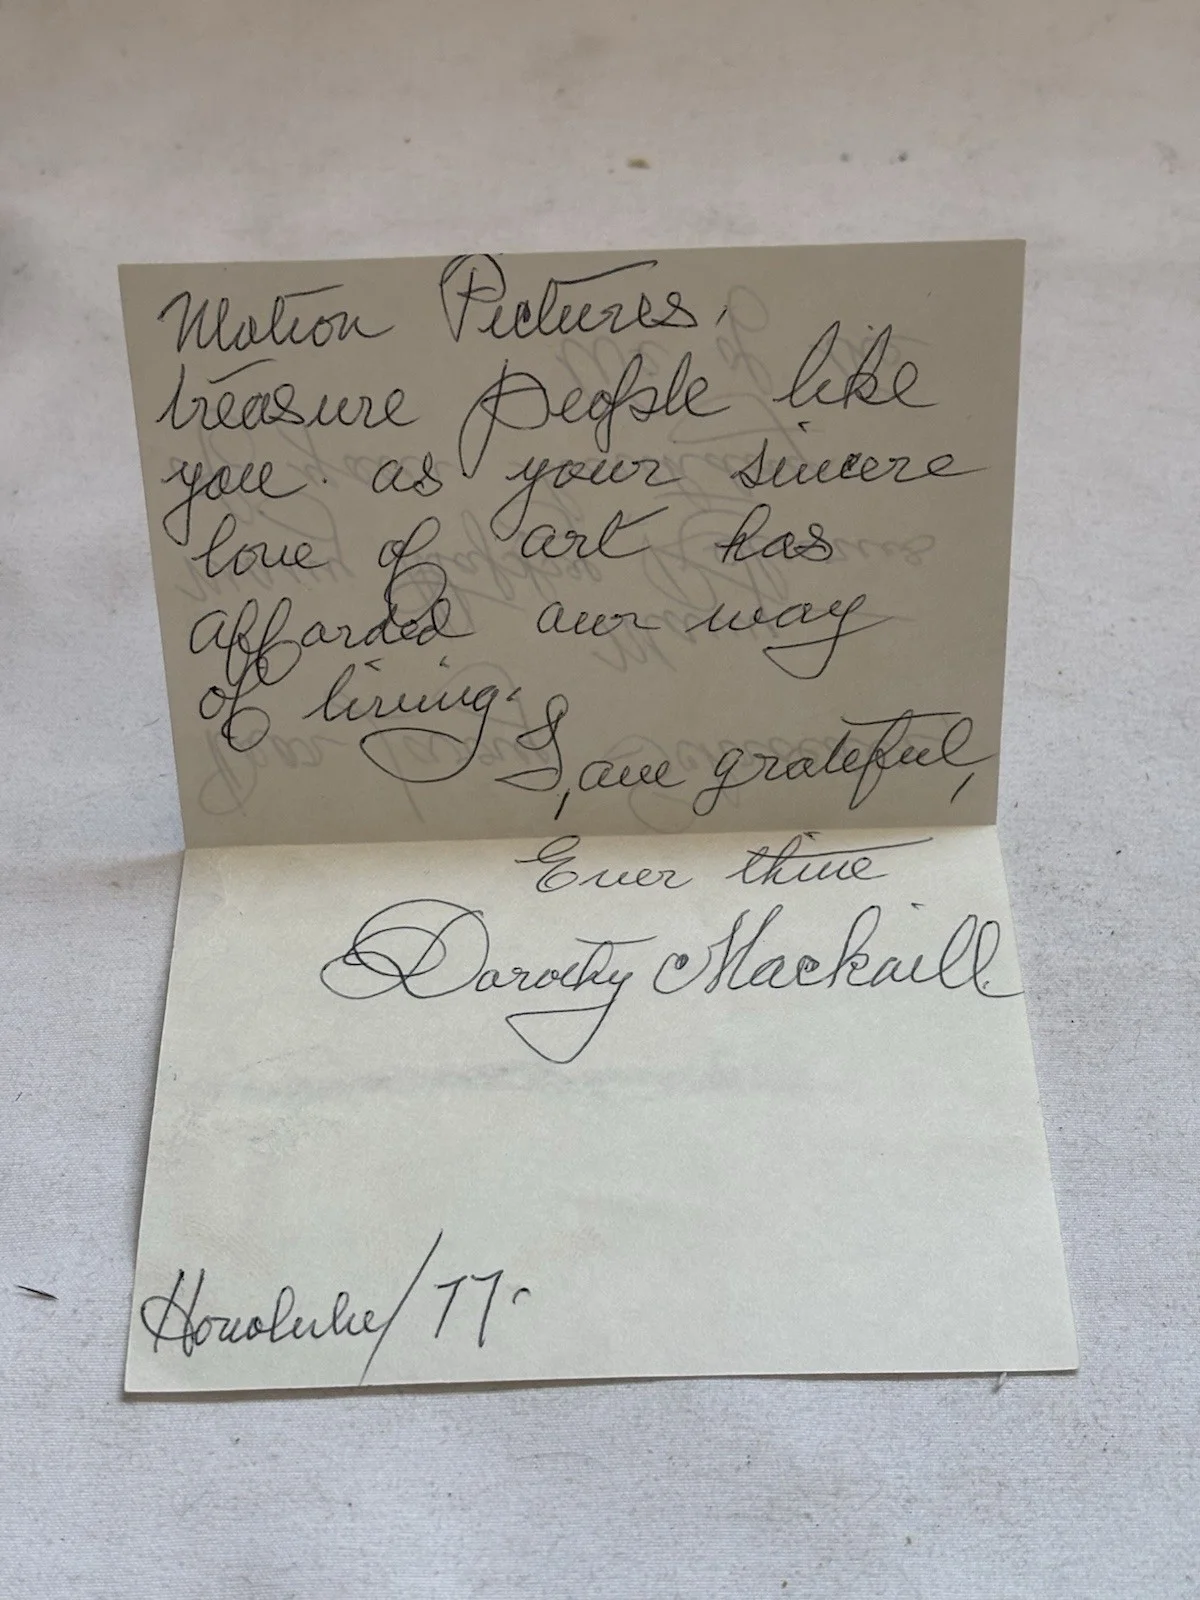 Motion Pictures,
treasure people like
you. as your sincere
love of art has
afforded our way
of living.
I, am grateful,
Ever thine
Dorothy Mackaill.
Honolulu/77.